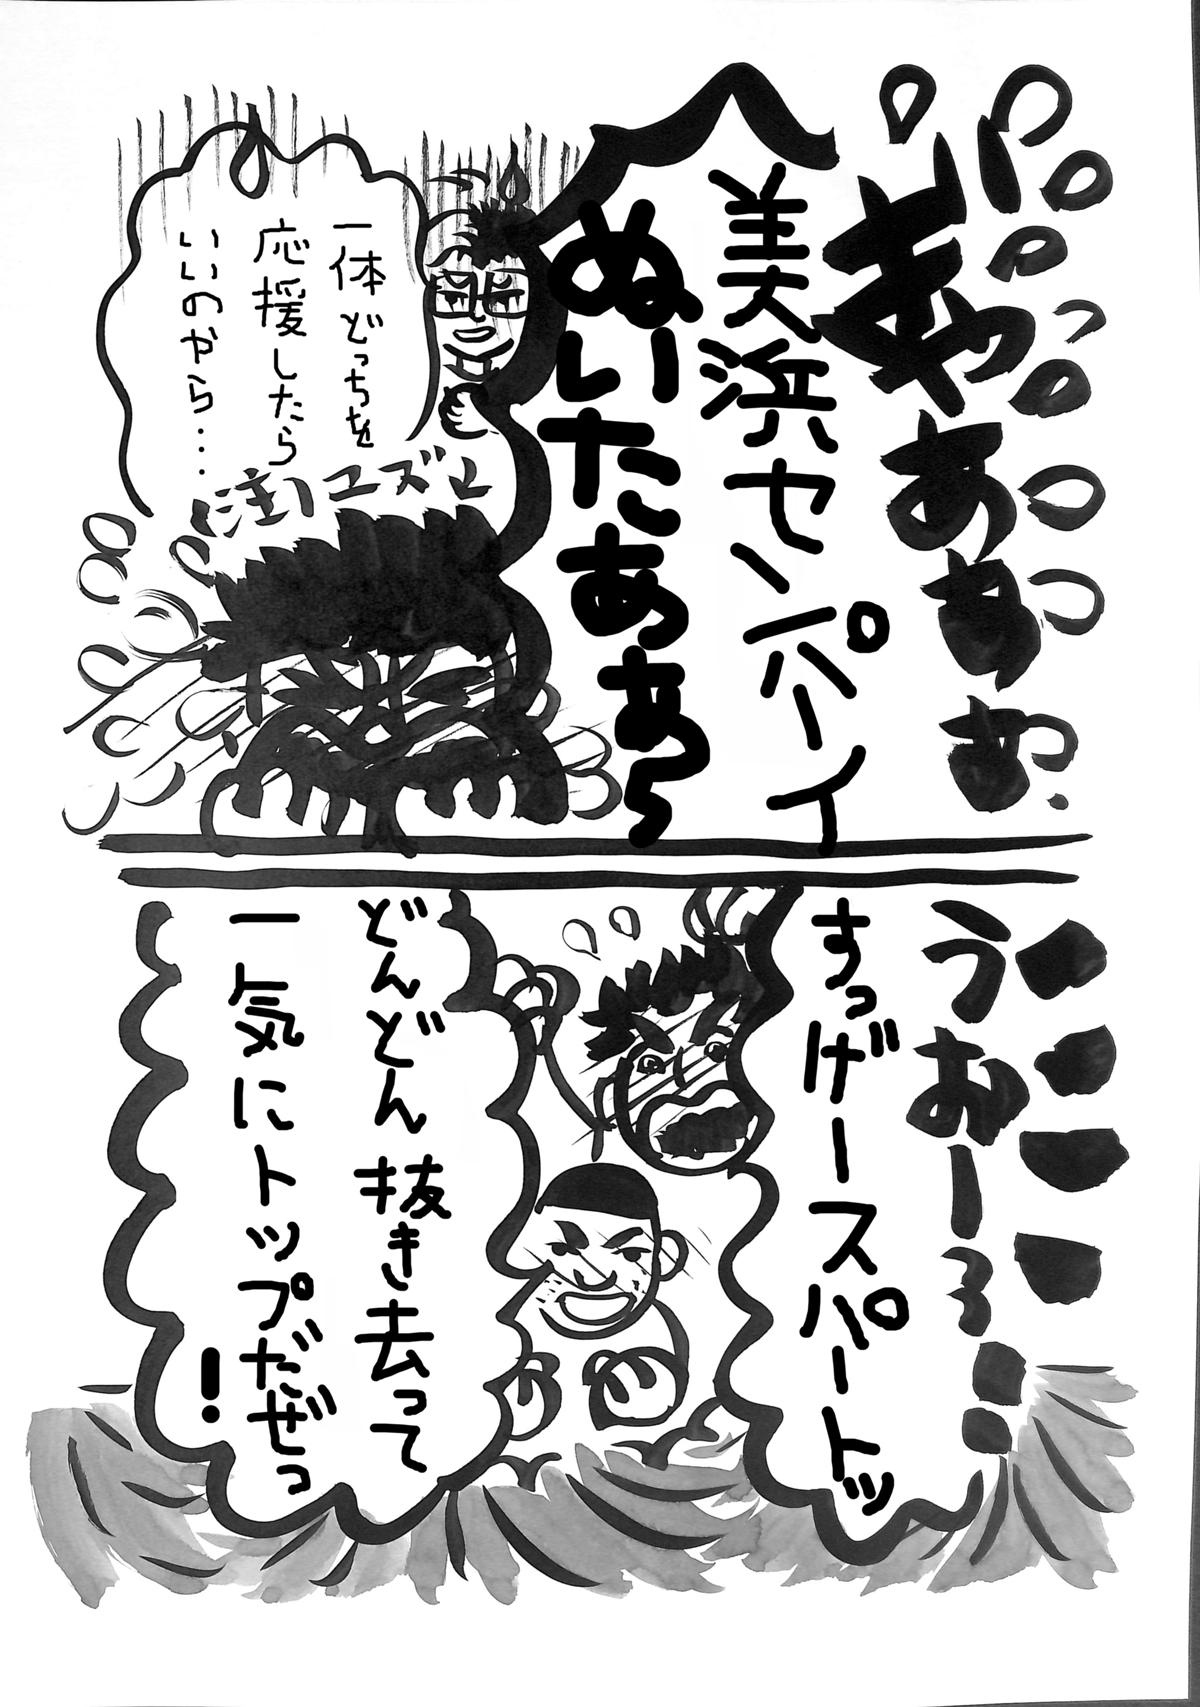 きゃあああああ
美浜センパーイ
ぬいたあああ〜
一体どっちを
応援したら
いいのやら・・・
(注)ユズレ
うおーーっ
すっげースパートッ
どんどん抜き去って
一気にトップだぜっ
！